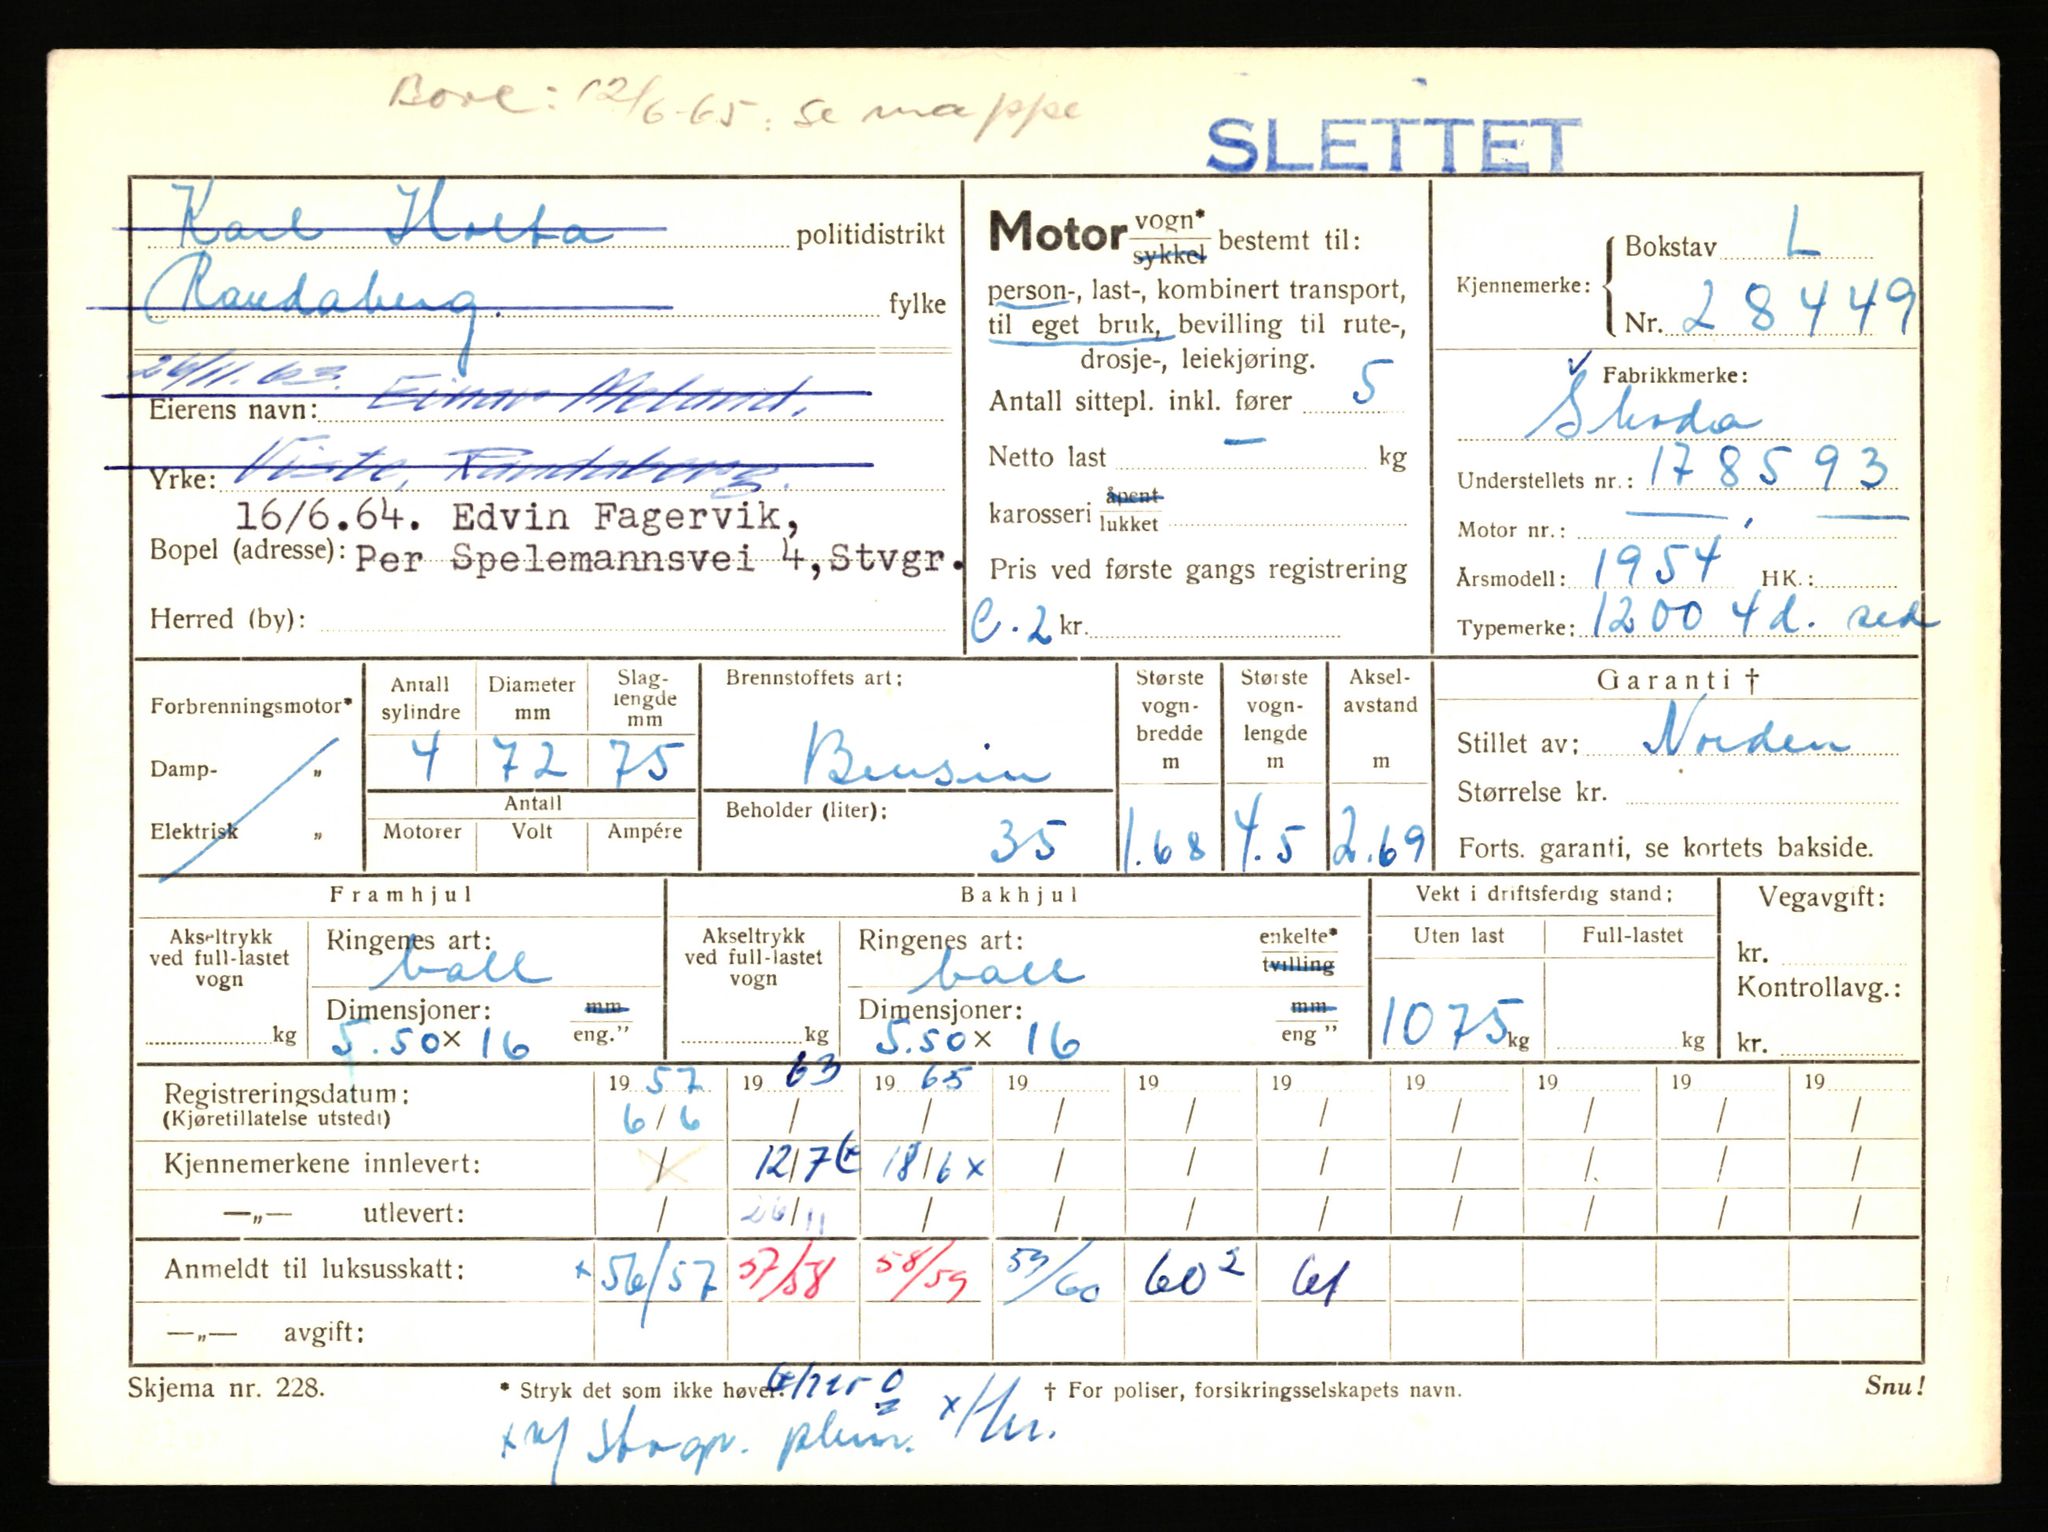 Bore: 12/6-65: se mappe
SLETTET
Karl Holta politidistrikt
Randaberg. fylke
24/11.63. Einar Meland,
Eierens navn:
Yrke: Viste, Randaberg.
16/6.64. Edvin Fagervik,
Bopel (adresse): Per Spelemannsvei 4, Stvgr.
Herred (by):
Motor vogn* sykkel bestemt til:
person-, last-, kombinert transport,
til eget bruk, bevilling til rute-,
drosje-, leiekjøring.
Antall sittepl. inkl. fører 5
Netto last — kg
karosseri åpent lukket
Pris ved første gangs registrering
C.2 kr.
Kjennemerke: Bokstav L
Nr. 28449
Fabrikkmerke:
Skoda
Understellets nr.: 178593
Motor nr.:
Årsmodell: 1954 HK.:
Typemerke: 1200 4d. sed
Forbrenningsmotor*
Damp- „
Elektrisk „
Antall sylindre
4
Diameter mm
72
Slaglengde mm
75
Antall
Motorer Volt Ampére
Brennstoffets art:
Bensin
Beholder (liter):
35
Største vognbredde m
1.68
Største vognlengde m
4.5
Akselavstand m
2.69
Garanti †
Stillet av: Norden
Størrelse kr.
Forts. garanti, se kortets bakside.
Framhjul
Akseltrykk ved full-lastet vogn
kg
Ringenes art:
ball
Dimensjoner: mm
5.50 x 16 eng."
Bakhjul
Akseltrykk ved full-lastet vogn
kg
Ringenes art: enkelte*
ball tvilling
Dimensjoner: mm
5.50 x 16 eng"
Vekt i driftsferdig stand:
Uten last Full-lastet
1075 kg kg
Vegavgift:
kr.
Kontrollavg.:
kr.
Registreringsdatum: 19 57 19 63 19 65 19 19 19 19 19 19 19
(Kjøretillatelse utstedt) 6/6 / / / / / / / / /
Kjennemerkene innlevert: / 12/7 18/6 x / / / / / / /
—„— utlevert: / 26/11 / / / / / / / /
Anmeldt til luksusskatt: x 56/57 57/58 58/59 59/60 60² 61
—„— avgift:
Skjema nr. 228. * Stryk det som ikke høver. † For poliser, forsikringsselskapets navn. Snu!